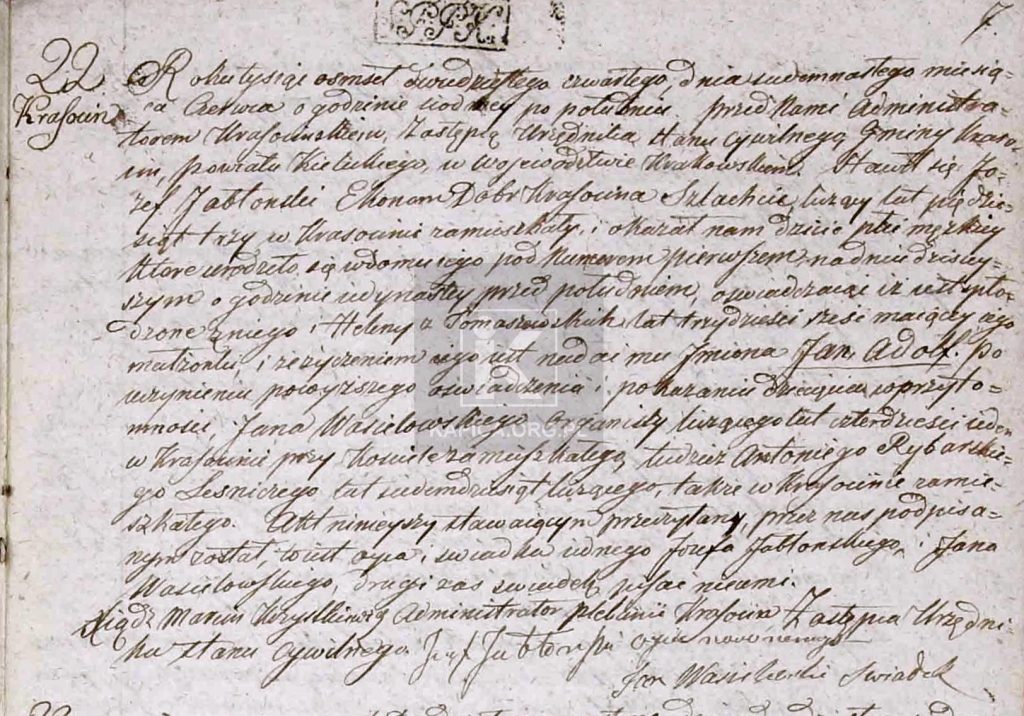 7.
22
Krasocin
Roku tysiąc osmset dwudziestego czwartego, dnia siedemnastego miesią-
ca Czerwca o godzinie siodmey po południu przed Nami Administra-
torem Krasocinskiem, Zastępcą Urzędnika Stanu Cywilnego Gminy
powiatu Kieleckiego, w Wojewodztwie Krakowskiem. Stawił się Jo-
zef Jabłonski Ekonom Dobr Krasocina Szlachcic, liczący lat pięćdzie-
siąt trzy w Krasocinie zamieszkały, i okazał nam dziecie płci męzkiey
ktore urodzeło się w domu iego pod Numerem pierwszem, na dniu dzisiey-
szym o godzinie iedynastey przed południem, oswiadczaiąc iż iest spło-
dzone z niego i Heleny z Tomaszewskich, lat trzydziesci szesc maiącey iego
małzonki, i ze zyczeniem iego iest nadać mu Jmiona Jan Adolf. Po
uczynieniu powyzszego oswiadczenia i pokazaniu dziecięcia w przyto-
mnosci, Jana Wasilowskiego Organisty liczącego lat czterdziesci siedm
w Krasocinie przy Kosciele zamieszkałego, tudziez Antoniego Rybarskie-
go Lesniczego, lat siedemdziesiąt liczącego, także w Krasocinie zamie-
szkałego. Akt ninieyszy stawaiącym przeczytany, przez nas podpisa-
nym został, to iest oyca i swiadka iednego Jozefa Jabłonskiego, i Jana
Wasilowskiego, drugi zas swiadek pisać nieumi.
Xiądz Marcin Administrator plebanii Krasocin Zastępca Urzędni-
ka stanu cywilnego Jozef Jabłonski oyciec
Jan Wasilewski Swiadek
KAPICA.ORG.PL